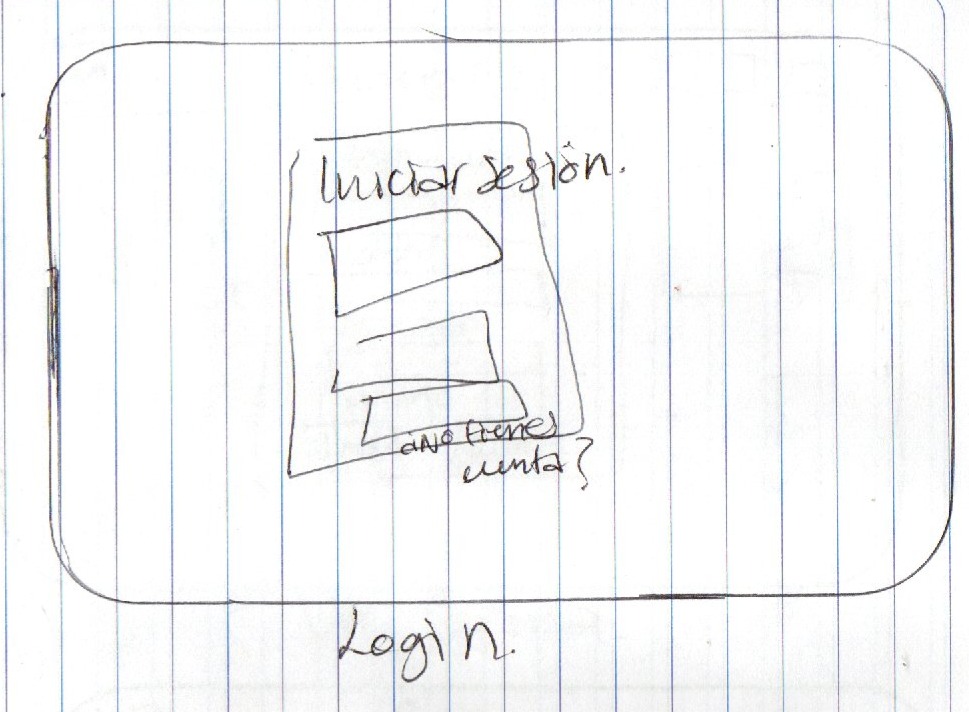 Iniciar sesión.
¿No tienes
cuenta?
Login.